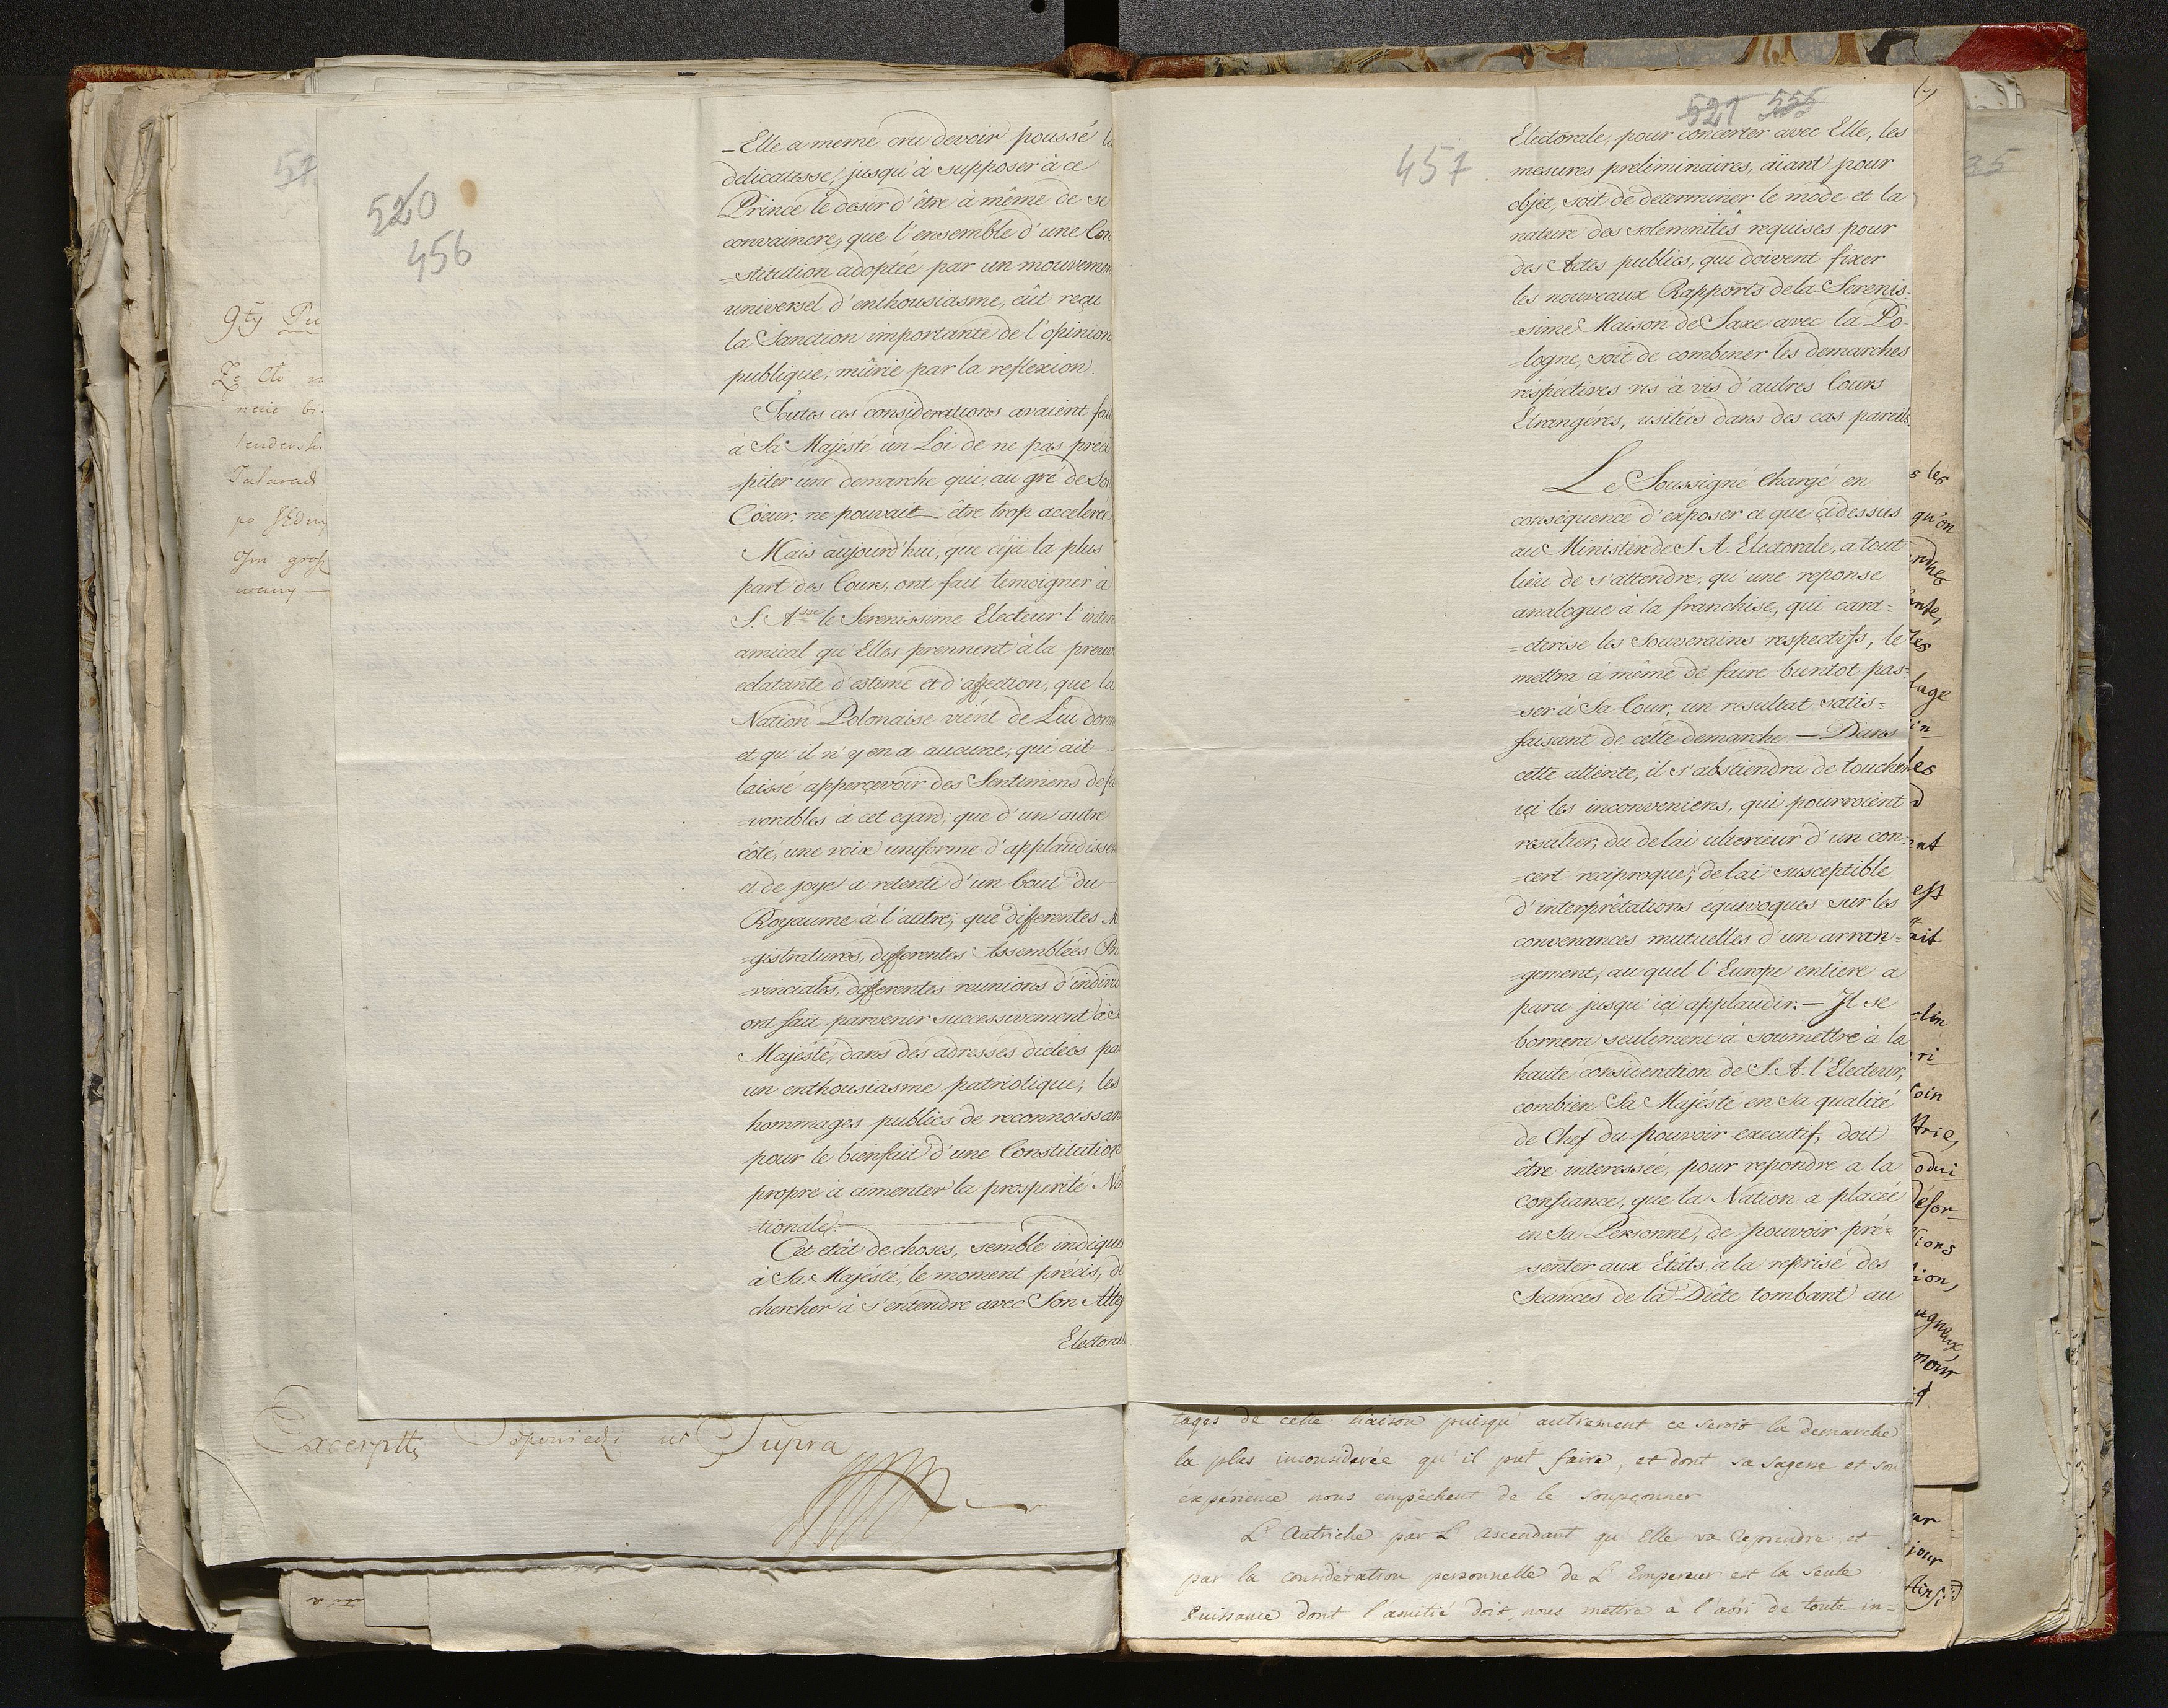 520
456
-Elle a meme cru devoir poussé la
delicatesse, jusqu'à supposer à ce
Prince le desir d'être à même de se
convaincre, que l'ensemble d'une Con
-stitution adoptée par un mouvemen
universel d'enthousiasme, eût reçu
la Sanction importante de l'opinion
publique, mûrie par la reflexion.
Toutes ces considerations avaient fai
à Sa Majésté un Loi de ne pas préci
piter une demarche qui, au gré de Son
Cöeur, ne pouvait être trop acceleréé
Mais aujourd'hui, que déjà la plus
part des Cours, ont fait temoigner à
S. A.sse le Serenissime Electeur l'inter
amical qu'Elles prennent à la preuv
eclatante d'estime et d'affection, que la
Nation Polonaise vient de Lui donn
et qu'il n'y en a aucune, qui ait
laissé apperçevoir des Sentimens defa
-vorables à cet egard; que d'un autre
côté, une voix uniforme d'applaudissem
et de joye a retenti d'un bout du
Royaume à l'autre; que differentes M
-gistratures, differentes Assemblées Pro
-vinciales, differentes reunions d'individ
ont fait parvenir successivement à S
Majésté, dans des adresses dictees pa
un enthousiasme patriotique, les
hommages publics de reconnoissan
pour le bienfait d'une Constitution
propre à cimenter la prosperité Na
-tionale.
Cet etât de choses, semble indiquer
à Sa Majésté, le moment précis, de
chercher à s'entendre avec Son Alte
Electoral
9ty
po
Excerptt ut Supra
521 555
457.
Electorale, pour concerter avec Elle, les
mesures preliminaires, aïant pour
objet, soit de determiner le mode et la
nature des solemnitês requises pour
des Actes publics, qui doivent fixer
les nouveaux Rapports de la Serenis-
-sime Maison de Saxe avec la Po-
-logne, soit de combiner les demarches
réspéctives vis à vis d'autres Cours
Etrangéres, usitées dans des cas pareils.
Le Soussigné Chargé en
conséquence d'exposer ce que çi dessus
au Ministére de S. A. Electorale, a tout
lieu de s'attendre, qu'une reponse
analogue à la franchise, qui cara=
=cterise les Souverains respectifs, le
mettra à même de faire bientot pas=
-ser à Sa Cour, un resultat satis=
faisant de cette demarche. — Dans
cette attente, il s'abstiendra de toucher
ici les inconveniens, qui pourroient
resulter, du delai ulterieur d'un con-
-cert reciproque; delai susceptible
d'interprêtations equivoques sur les
convenances mutuelles d'un arran=
-gement, au quel l'Europe entiere a
paru jusqu'ici applaudir. — Il se
bornera seulement à soumettre à la
haute consideration de S. A. l'Electeur,
combien Sa Majésté en Sa qualité
de Chef du pouvoir executif, doit
être interessée, pour repondre a la
confiance, que la Nation a placéé
en Sa Personne, de pouvoir pré=
-senter aux Etâts, à la reprise des
Seances de la Diête tombant au
tages de cette liaison puisqu'autrement ce seroit la demarche
la plus inconsiderée qu'il put faire, et dont sa sagesse et son
expérience nous empêchent de le soupçonner
L'Autriche par L'ascendant qu'Elle va reprendre et
par la consideration personnelle de L'Empereur est la seule
Puissance dont l'amitié doit nous mettre à l'abri de toute in=
35
s les
qu'on
lage
les
est
ait
loin
ions
ion,
jour
Ainsi